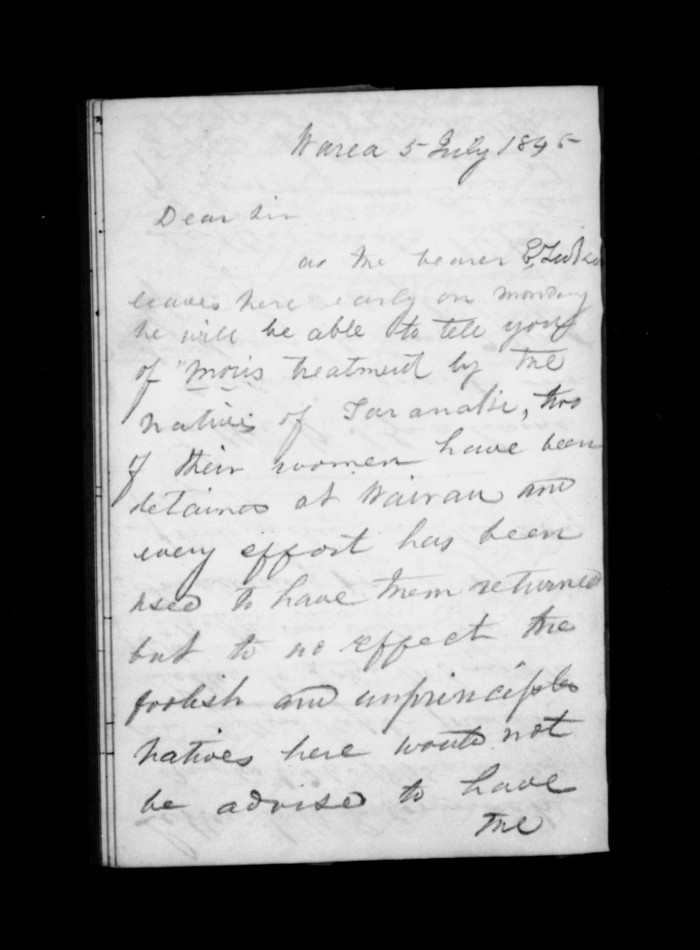 Warea 5 July 1845
Dear Sir
as the bearer E,
leaves here early on monday
he will be able to tell you
of "Moris treatment by the
natives of Taranakie, two
of their women have been
detained at Wairau and
every effort has been
used to have them returned
but to no effect the
foolish and unprincipled
natives here would not
be advised to have
the